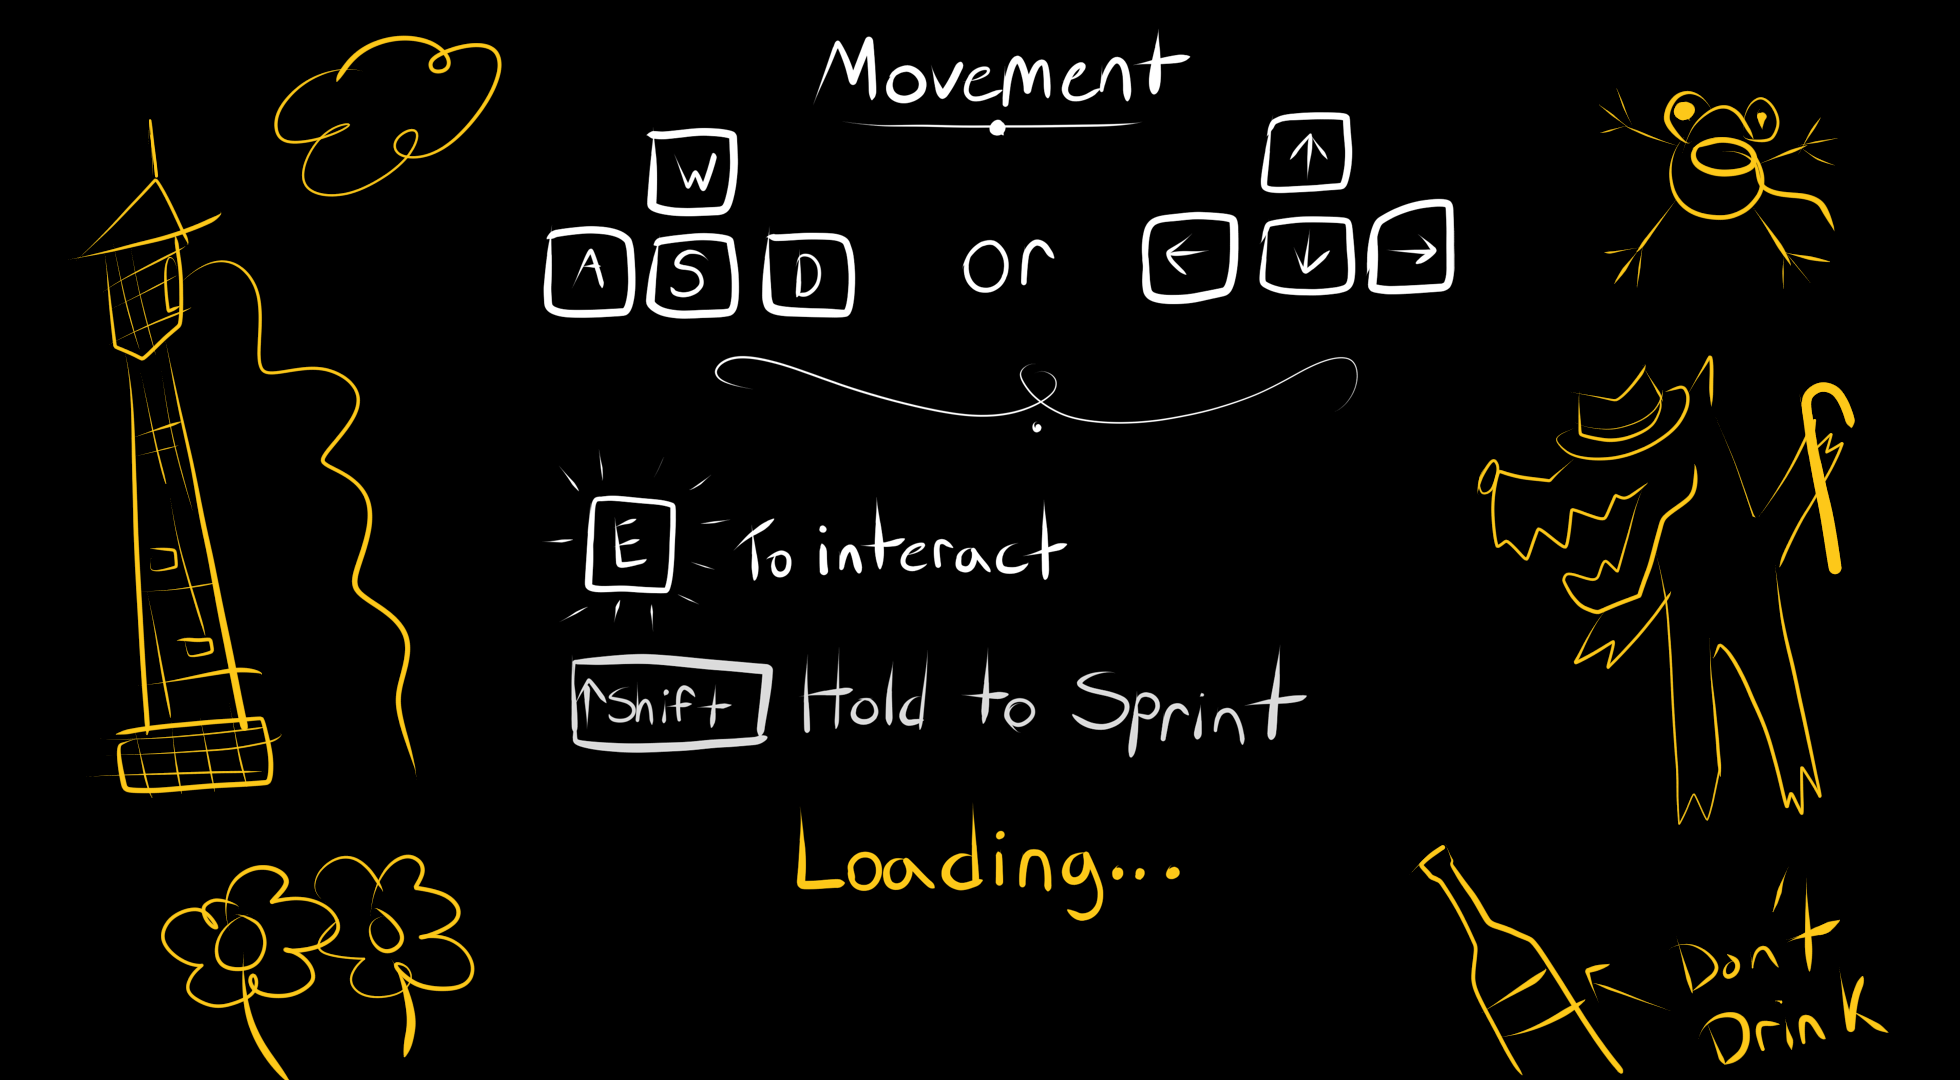 Movement
W ↑
A S D or ← ↓ →
E To interact
↑Shift Hold to Sprint
Loading...
Don't
Drink